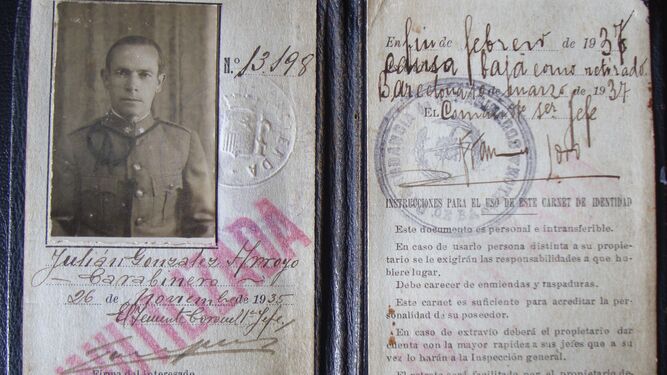 N.º 13.198
HACIENDA
Julián Gonzalez Arroyo
Carabinero
26 de Noviembre de 1935
El Teniente Coronel 1er Jefe,
ANULADA
Firma del interesado
En fin de febrero de 1937
causa baja como retirado.
Barcelona 10 de marzo de 1937
El Comandte 1er Jefe
INSTRUCCIONES PARA EL USO DE ESTE CARNET DE IDENTIDAD
Este documento es personal e intransferible.
En caso de usarlo persona distinta a su propie-
tario se le exigirán las responsabilidades a que hu-
biere lugar.
Debe carecer de enmiendas y raspaduras.
Este carnet es suficiente para acreditar la per-
sonalidad de su poseedor.
En caso de extravío deberá el propietario dar
cuenta con la mayor rapidez a sus jefes que a su
vez lo harán a la Inspección general.
El extracto será facilitado por el propietario de